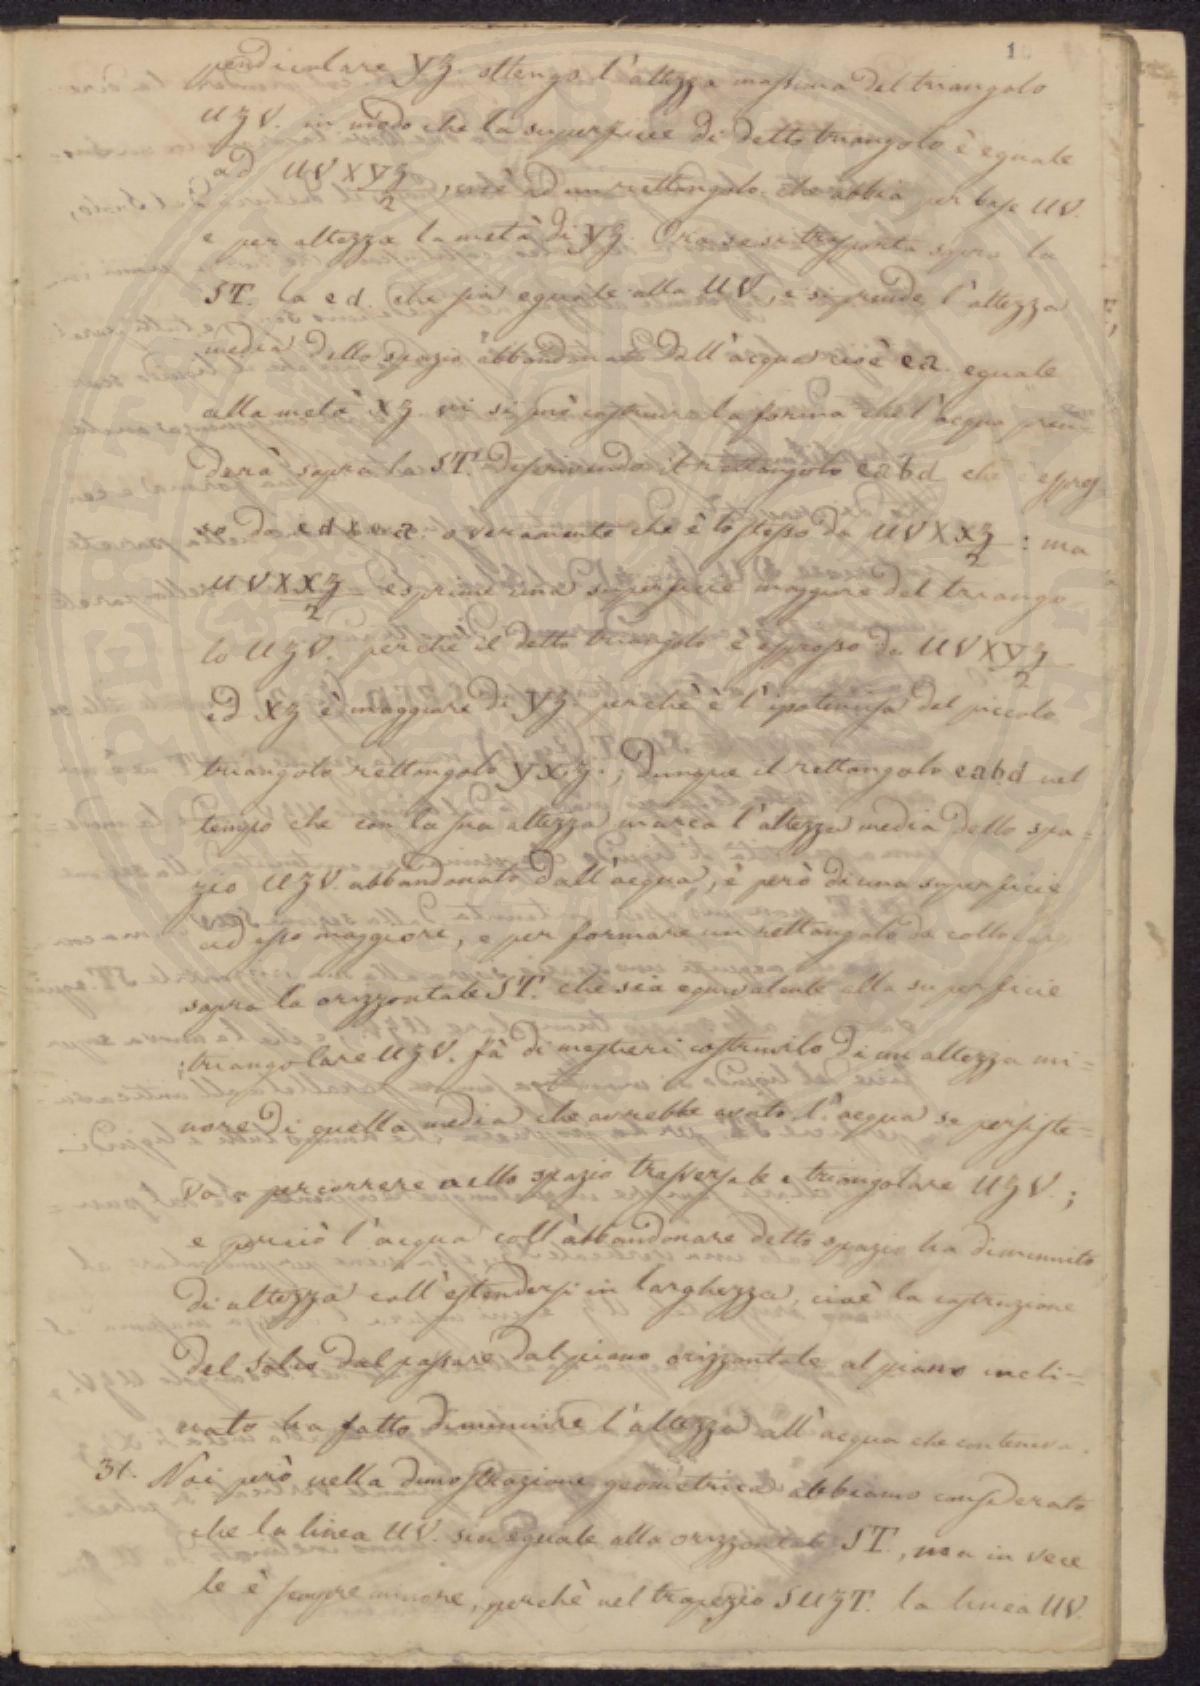 1
pendiculare YZ. ottengo l'altezza massima del triangolo
UZV. in modo che la superficie di detto triangolo è eguale
ad UV X YZ/2, cioè ad un rettangolo che abbia per base UV.
e per altezza la metà di YZ. Ora se si trasporta sopra la
ST. la ed. che sia eguale alla UV, e si prende l'altezza
media dello spazio abbandonato dall'acqua cioè ea. eguale
alla metà XZ. vi si può costruire la forma che l'acqua pren-
derà sopra la ST. descrivendo il rettangolo eabd che è espres
so da ed x ea. o veramente che è lo stesso da UV X XZ/2 : ma
UV X XZ/2 esprime una superficie maggiore del triango
lo UZV. perchè il detto triangolo è espresso da UV X YZ/2
ed XZ è maggiore di YZ. perchè è l'ipotenusa del piccolo
triangolo rettangolo YXZ.; dunque il rettangolo eabd nel
tempo che con la sua altezza marca l'altezza media dello spa=
zio UZV. abbandonato dall'acqua, è però di una superficie
ad esso maggiore, e per formare un rettangolo da collocarsi
sopra la orizzontale ST. che sia equivalente alla superficie
triangolare UZV. fà di mestieri costruirlo di un altezza mi=
nore di quella media che avrebbe avuto l'acqua se persiste=
va a percorrere nello spazio trasversale e triangolare UZV.;
e perciò l'acqua coll'abbandonare detto spazio ha diminuito
di altezza coll'estendersi in larghezza, cioè la costruzione
del solco dal passare dal piano orizzontale al piano incli=
nato ha fatto diminuire l'altezza all'acqua che conteneva.
31. Noi però nella dimostrazione geometrica abbiamo considerato
che la linea UV. sia eguale alla orizzontale ST., ma in vece
le è sempre minore, perchè nel trapezio SUZT. la linea UV.